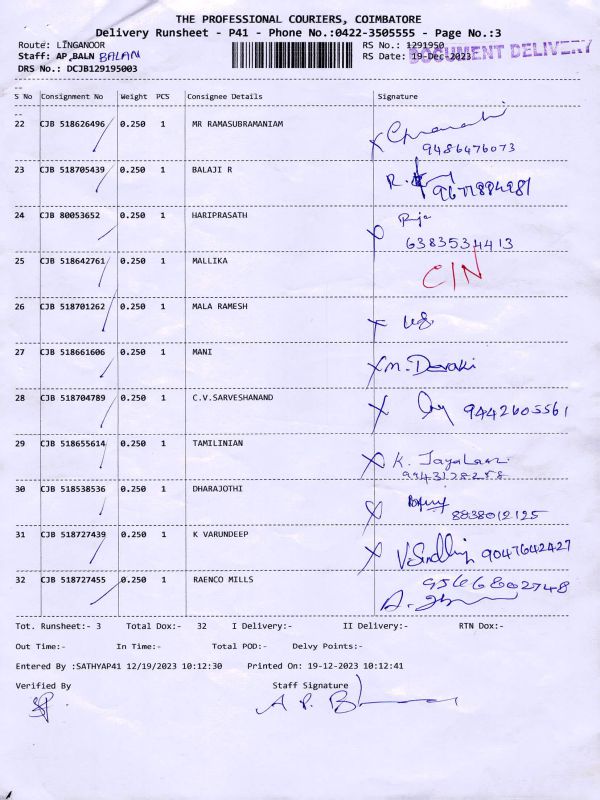 THE PROFESSIONAL COURIERS, COIMBATORE
Delivery Runsheet - P41 - Phone No.:0422-3505555 - Page No.:3
Route: LINGANOOR RS No.: 1291950
Staff: AP.BALN BALAN RS Date: 19-Dec-2023 DOCUMENT DELIVERY
DRS No.: DCJB129195003
S No Consignment No Weight PCS Consignee Details Signature
22 CJB 518626496 0.250 1 MR RAMASUBRAMANIAM
9486476073
23 CJB 518705439 0.250 1 BALAJI R R.
9677884981
24 CJB 80053652 0.250 1 HARIPRASATH
6383534413
25 CJB 518642761 0.250 1 MALLIKA C/N
26 CJB 518701262 0.250 1 MALA RAMESH
27 CJB 518661606 0.250 1 MANI M. Devaki
28 CJB 518704789 0.250 1 C.V.SARVESHANAND 9442605561
29 CJB 518655614 0.250 1 TAMILINIAN K.
9943128258
30 CJB 518538536 0.250 1 DHARAJOTHI
8838012125
31 CJB 518727439 0.250 1 K VARUNDEEP 9047642427
32 CJB 518727455 0.250 1 RAENCO MILLS 9566802748
Tot. Runsheet:- 3 Total Dox:- 32 I Delivery:- II Delivery:- RTN Dox:-
Out Time:- In Time:- Total POD:- Delvy Points:-
Entered By :SATHYAP41 12/19/2023 10:12:30 Printed On: 19-12-2023 10:12:41
Verified By Staff Signature
A P. B